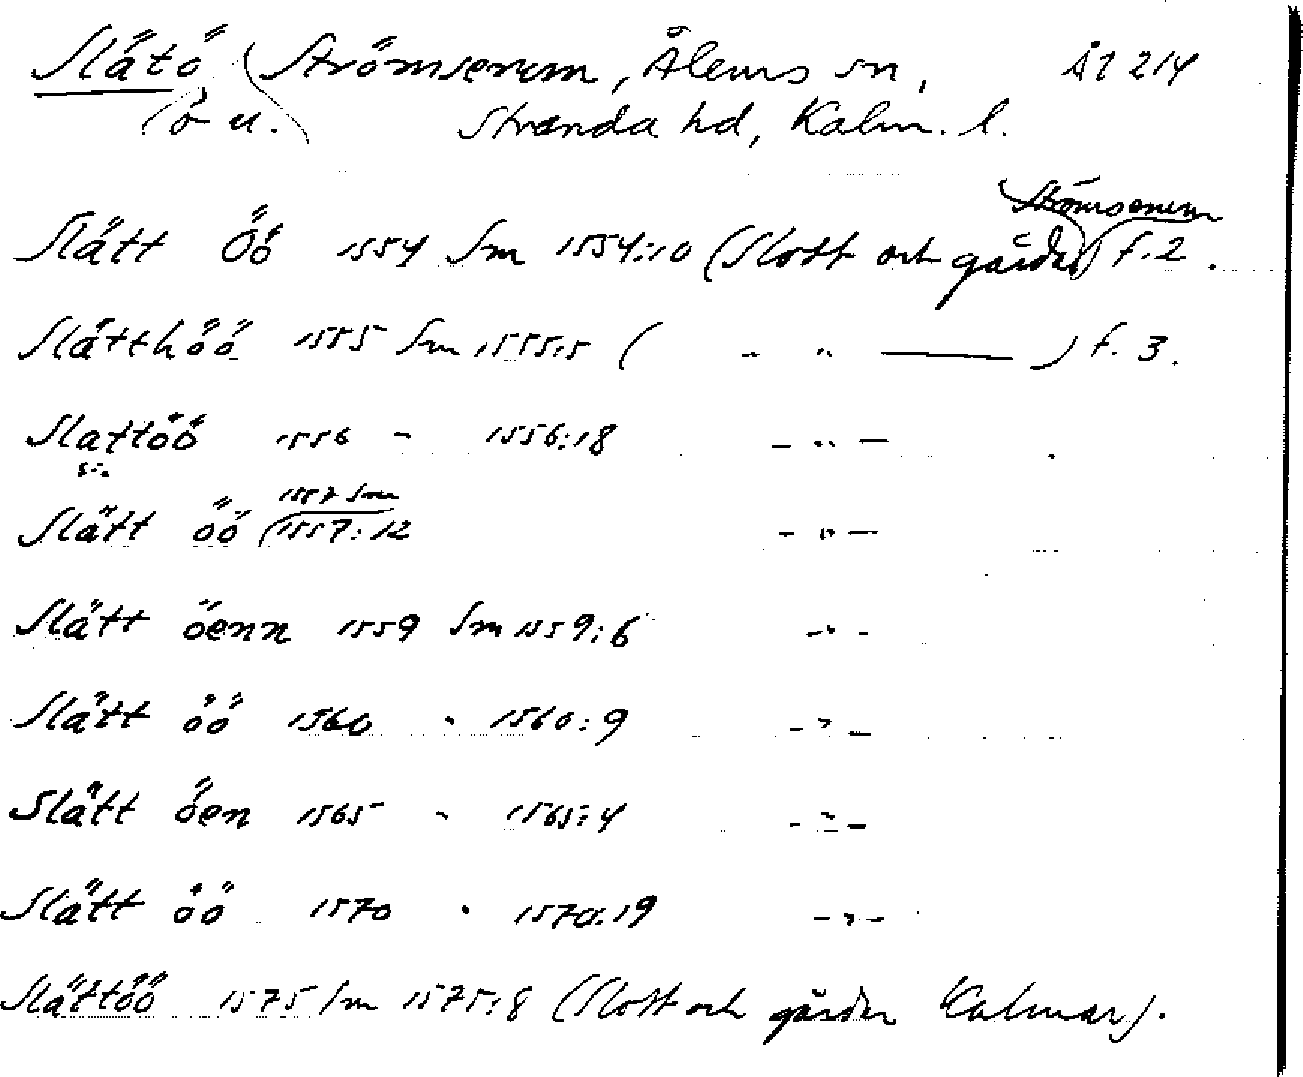 Slätö Strömserum, Ålems sn, Ål 214
ö u. Stranda hd, Kalm. l.
Strömserum
Slätt Öö 1554 Sm 1554:10 (Slott och gårdar) f. 2.
Slätthöö 1555 Sm 1555:5 ( - " — ) f. 3.
Slattöö 1556 - 1556:18 - " -
sic
1557 Sm
Slätt öö 1557:12 - " -
Slätt öenn 1559 Sm 1559:6 - " -
Slätt öö 1560 " 1560:9 - " -
Slätt öen 1565 - 1565:4 - " -
Slätt öö 1570 " 1570:19 - " -
Slättöö 1575 Sm 1575:8 (Slott och gårdar Kalmar).